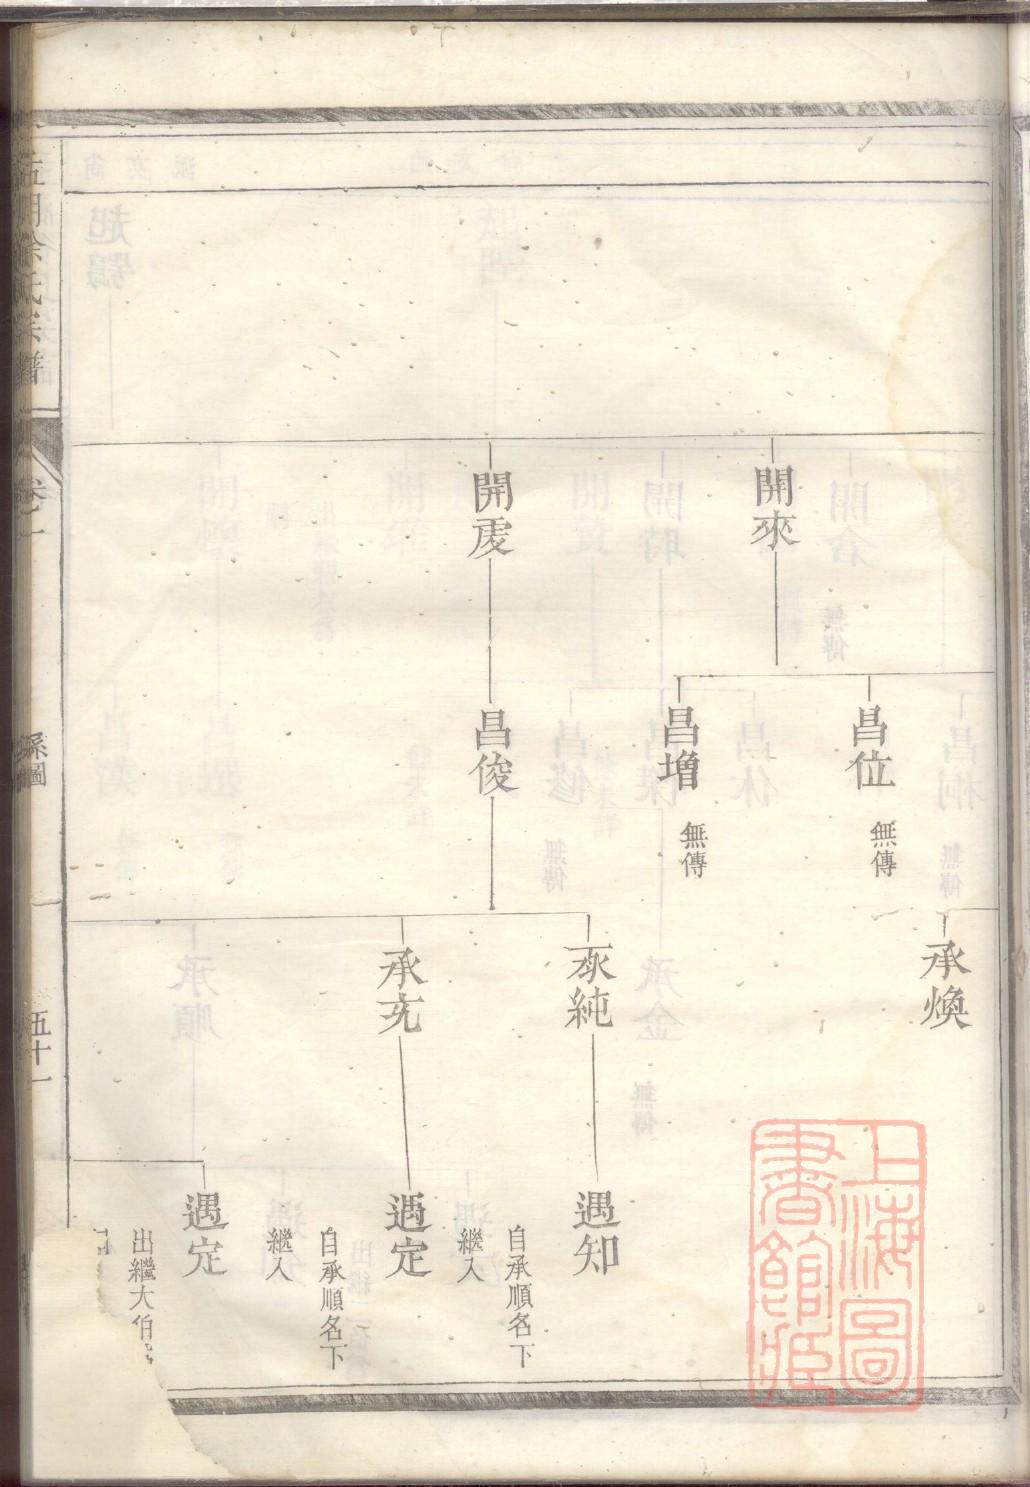 開來
開虔
昌位
無傳
昌增
無傳
昌俊
承煥
承純
承充
遇知
自承順名下
繼入
遇定
自承順名下
繼入
遇定
出繼大伯
徐氏宗譜
卷一
系圖
五十一
上海圖
書館藏